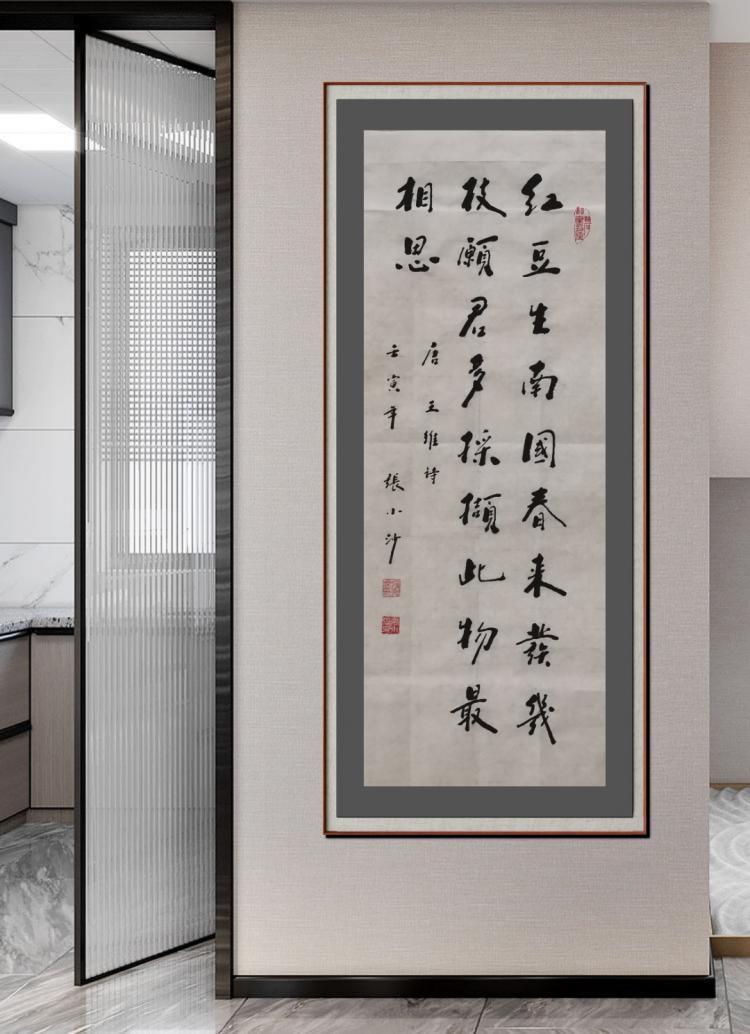 红豆生南國春来發幾
枝願君多採擷此物最
相思
唐王維詩
壬寅年 張小沙